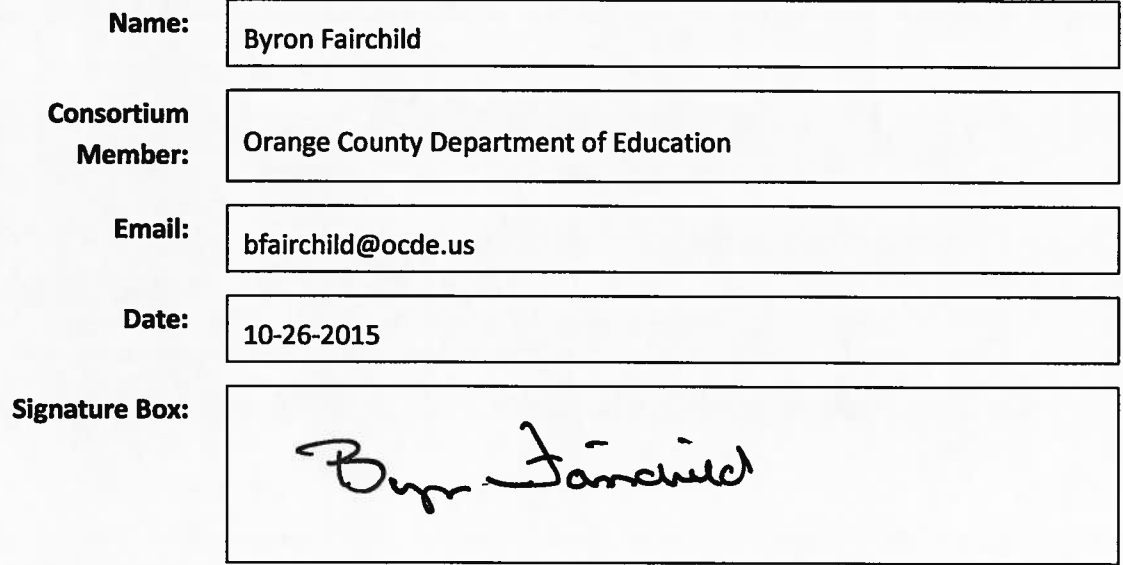 Name:
Byron Fairchild
Consortium
Member:
Orange County Department of Education
Email:
bfairchild@ocde.us
Date:
10-26-2015
Signature Box:
Byron Fairchild